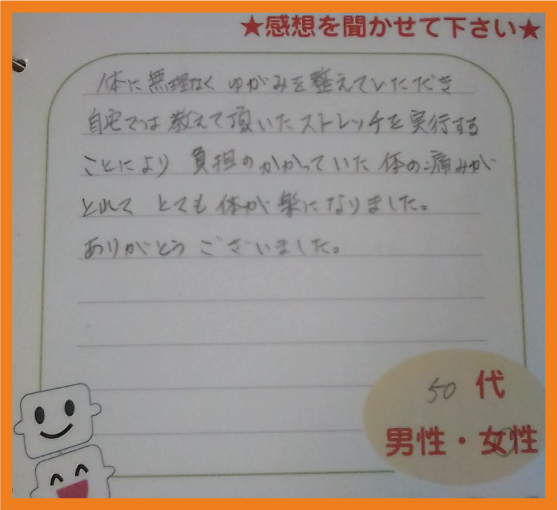 ★感想を聞かせて下さい★
体に無理なく ゆがみを整えていただき
自宅では教えて頂いたストレッチを実行する
ことにより 負担のかかっていた 体の痛みが
とれて とても体が楽になりました。
ありがとうございました。
50 代
男性・女性